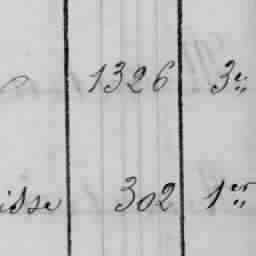 1326 3e
isse 302 1er